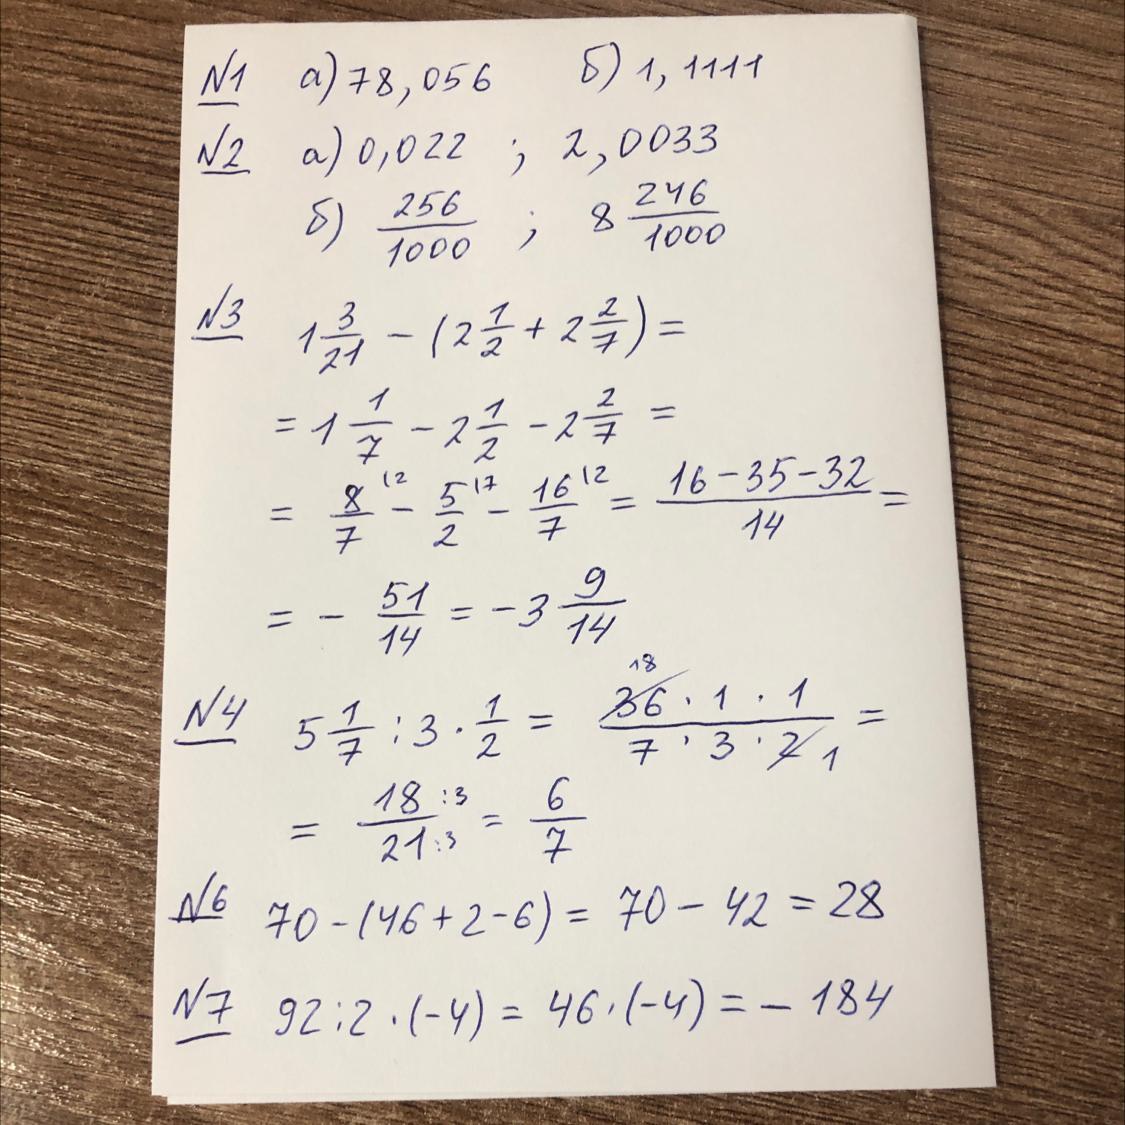 N1 а) 78,056 б) 1,1111
N2 а) 0,022 ; 2,0033
б) 256/1000 ; 8 246/1000
N3 1 3/21 - (2 1/2 + 2 2/7) =
= 1 1/7 - 2 1/2 - 2 2/7 =
= 8/7 (2 - 5/2 (7 - 16/7 (2 = (16-35-32)/14 =
= - 51/14 = -3 9/14
N4 5 1/7 : 3 · 1/2 = (36 18 · 1 · 1)/(7 · 3 · 2 1) =
= 18:3/21:3 = 6/7
N6 70 - (46+2-6) = 70 - 42 = 28
N7 92:2·(-4) = 46·(-4) = - 184